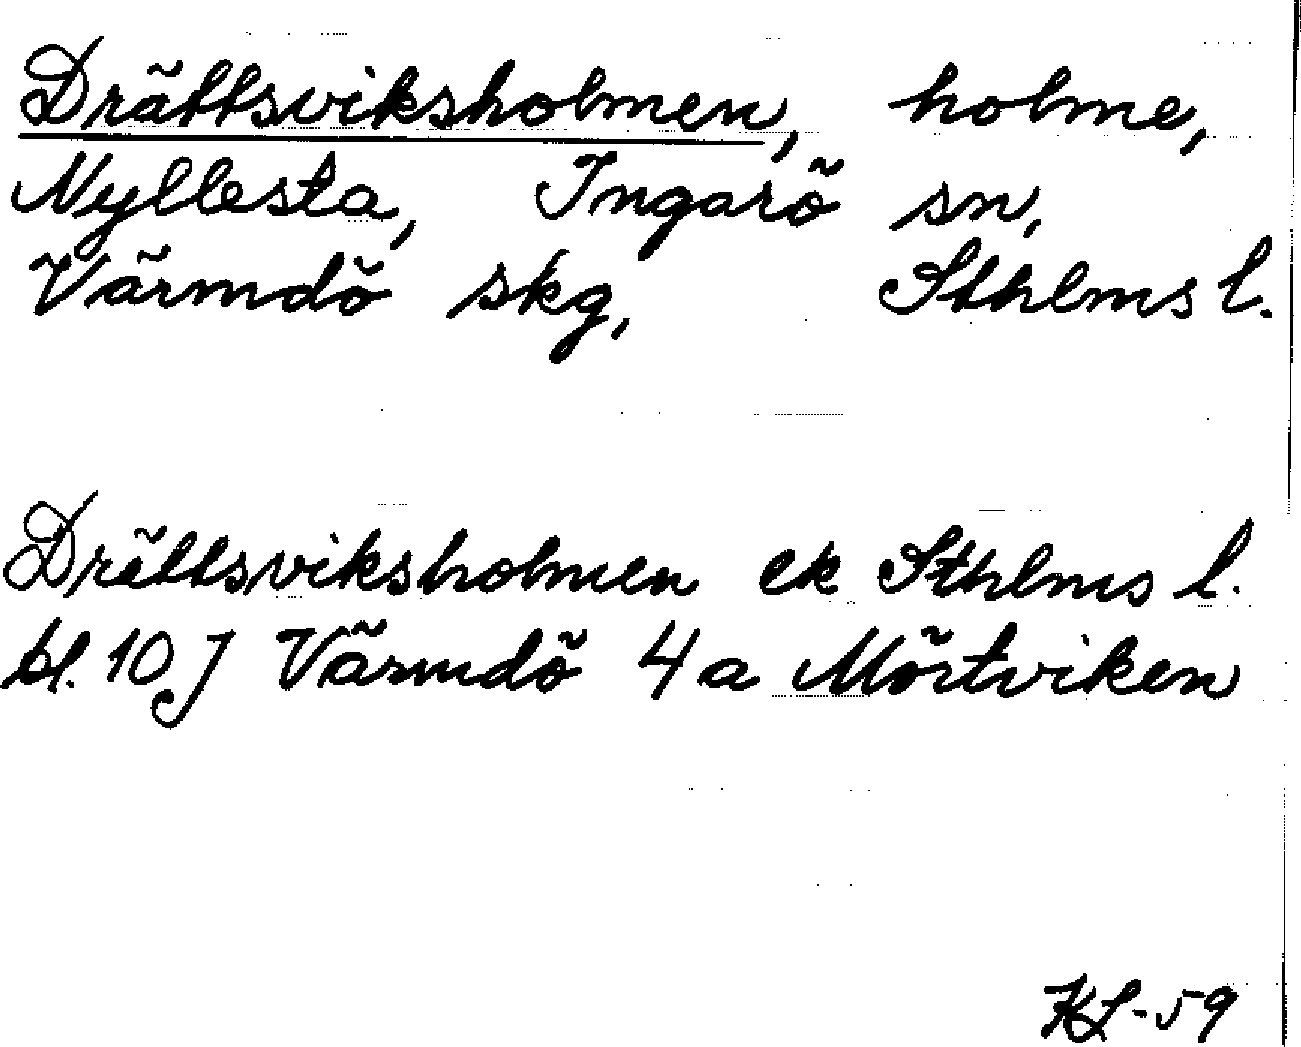 Drättsviksholmen, holme,
Nyllesta, Ingarö sn,
Värmdö skg, Sthlms l.
Drättsviksholmen ek Sthlms l.
bl. 10 J Värmdö 4 a Mörtviken
KL-59